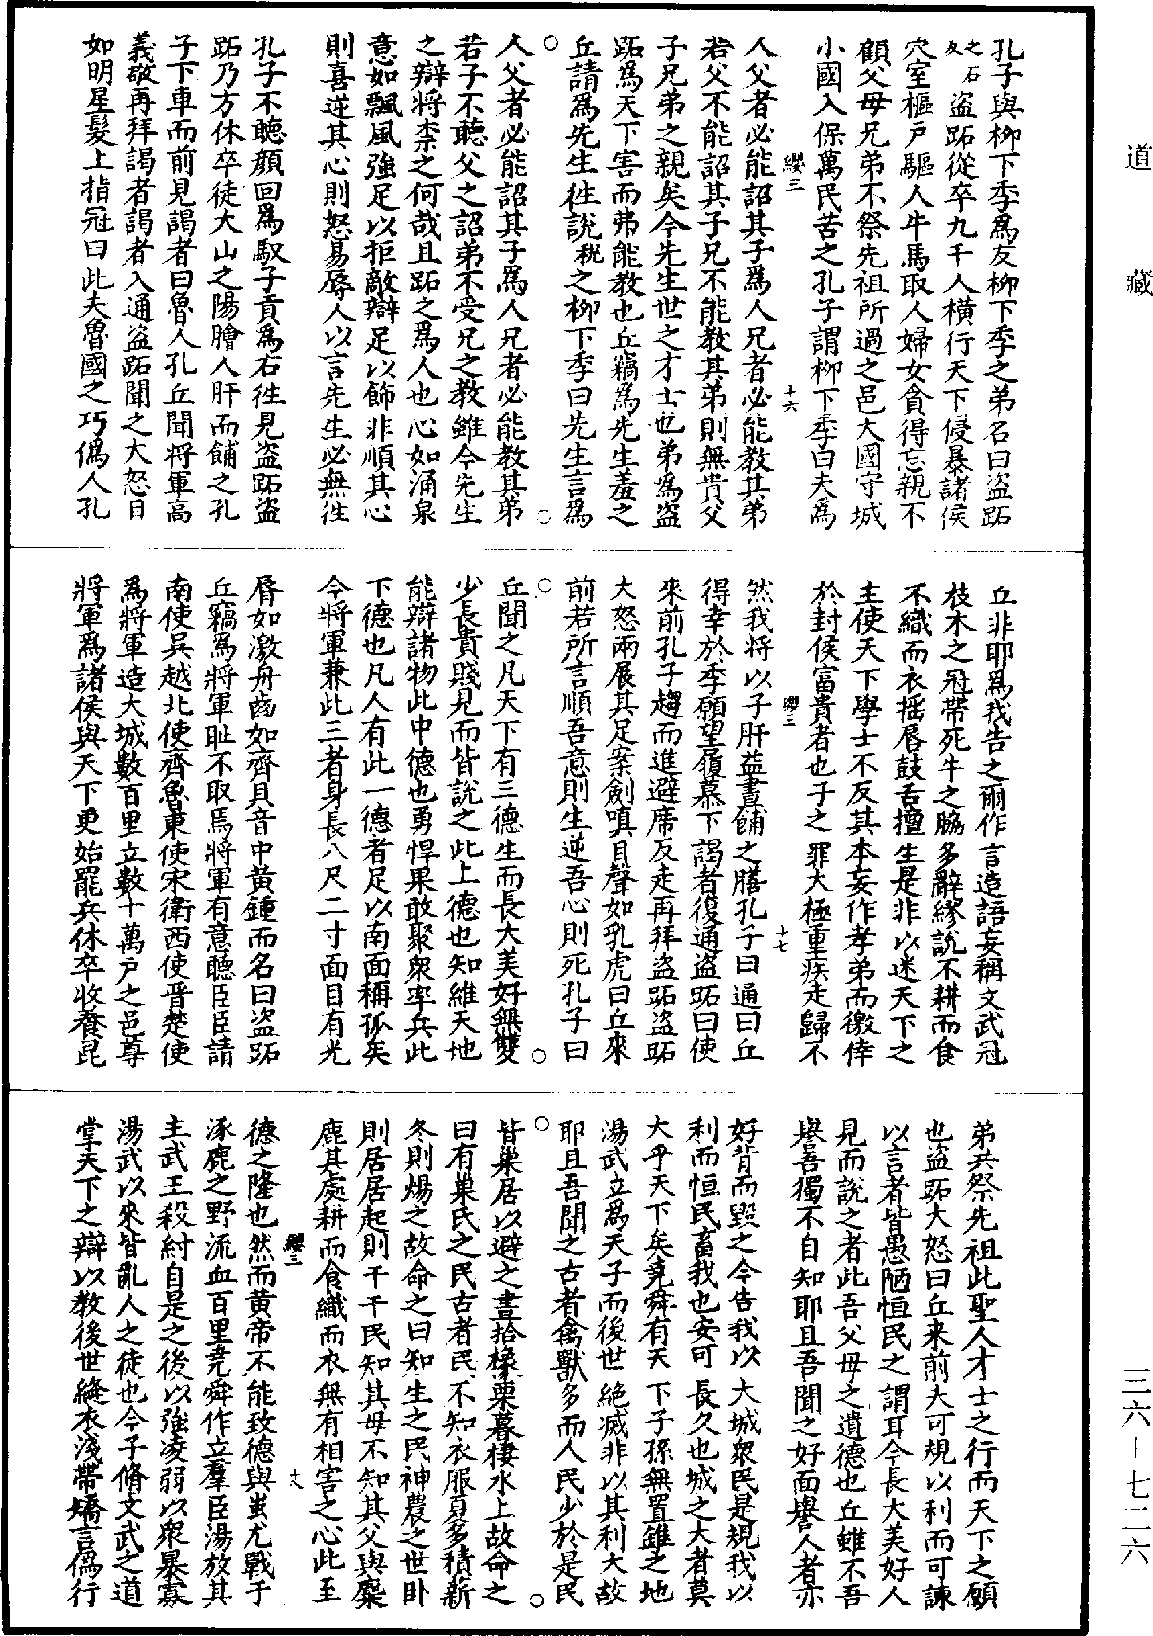 道藏
孔子與柳下季爲友柳下季之弟名曰盜跖
之石友盜跖從卒九千人橫行天下侵暴諸侯
穴室樞戶驅人牛馬取人婦女貪得忘親不
顧父母兄弟不祭先祖所過之邑大國守城
小國入保萬民苦之孔子謂柳下季曰夫爲
纓三 十六
人父者必能詔其子爲人兄者必能教其弟
若父不能詔其子兄不能教其弟則無貴父
子兄弟之親矣今先生世之才士也弟爲盜
跖爲天下害而弗能教也丘竊爲先生羞之
丘請爲先生往說稅之柳下季曰先生言爲
人父者必能詔其子爲人兄者必能教其弟
若子不聽父之詔弟不受兄之教雖今先生
之辯將柰之何哉且跖之爲人也心如涌泉
意如飄風強足以拒敵辯足以飾非順其心
則喜逆其心則怒易辱人以言先生必無往
孔子不聽顏回爲馭子貢爲右往見盜跖盜
跖乃方休卒徒大山之陽膾人肝而餔之孔
子下車而前見謁者曰魯人孔丘聞將軍高
義敬再拜謁者謁者入通盜跖聞之大怒目
如明星髮上指冠曰此夫魯國之巧僞人孔
丘非耶爲我告之爾作言造語妄稱文武冠
枝木之冠帶死牛之脇多辭繆說不耕而食
不織而衣搖唇鼓舌擅生是非以迷天下之
主使天下學士不反其本妄作孝弟而徼倖
於封侯富貴者也子之罪大極重疾走歸不
纓三 十七
然我將以子肝益晝餔之膳孔子曰通曰丘
得幸於季願望履慕下謁者復通盜跖曰使
來前孔子趨而進避席反走再拜盜跖盜跖
大怒兩展其足案劍嗔目聲如乳虎曰丘來
前若所言順吾意則生逆吾心則死孔子曰
丘聞之凡天下有三德生而長大美好無雙
少長貴賤見而皆說之此上德也知維天地
能辯諸物此中德也勇悍果敢聚衆率兵此
下德也凡人有此一德者足以南面稱孤矣
今將軍兼此三者身長八尺二寸面目有光
脣如激丹齒如齊貝音中黃鍾而名曰盜跖
丘竊爲將軍耻不取焉將軍有意聽臣臣請
南使吳越北使齊魯東使宋衛西使晉楚使
爲將軍造大城數百里立數十萬戶之邑尊
將軍爲諸侯與天下更始罷兵休卒收養昆
弟共祭先祖此聖人才士之行而天下之願
也盜跖大怒曰丘來前夫可規以利而可諫
以言者皆愚陋恒民之謂耳今長大美好人
見而說之者此吾父母之遺德也丘雖不吾
譽吾獨不自知耶且吾聞之好面譽人者亦
好背而毀之今告我以大城衆民是規我以
利而恒民畜我也安可長久也城之大者莫
大乎天下矣堯舜有天下子孫無置錐之地
湯武立爲天子而後世絕滅非以其利大故
耶且吾聞之古者禽獸多而人民少於是民
皆巢居以避之晝拾橡栗暮棲木上故命之
曰有巢氏之民古者民不知衣服夏多積薪
冬則煬之故命之曰知生之民神農之世卧
則居居起則于于民知其母不知其父與麋
鹿共處耕而食織而衣無有相害之心此至
纓三 十八
德之隆也然而黃帝不能致德與蚩尤戰于
涿鹿之野流血百里堯舜作立羣臣湯放其
主武王殺紂自是之後以強凌弱以衆暴寡
湯武以來皆亂人之徒也今子脩文武之道
掌天下之辯以教後世縫衣淺帶矯言僞行
三六—七二六